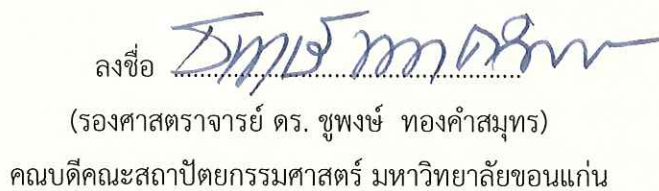 ลงชื่อ ................................................
(รองศาสตราจารย์ ดร. ชูพงษ์ ทองคำสมุทร)
คณบดีคณะสถาปัตยกรรมศาสตร์ มหาวิทยาลัยขอนแก่น